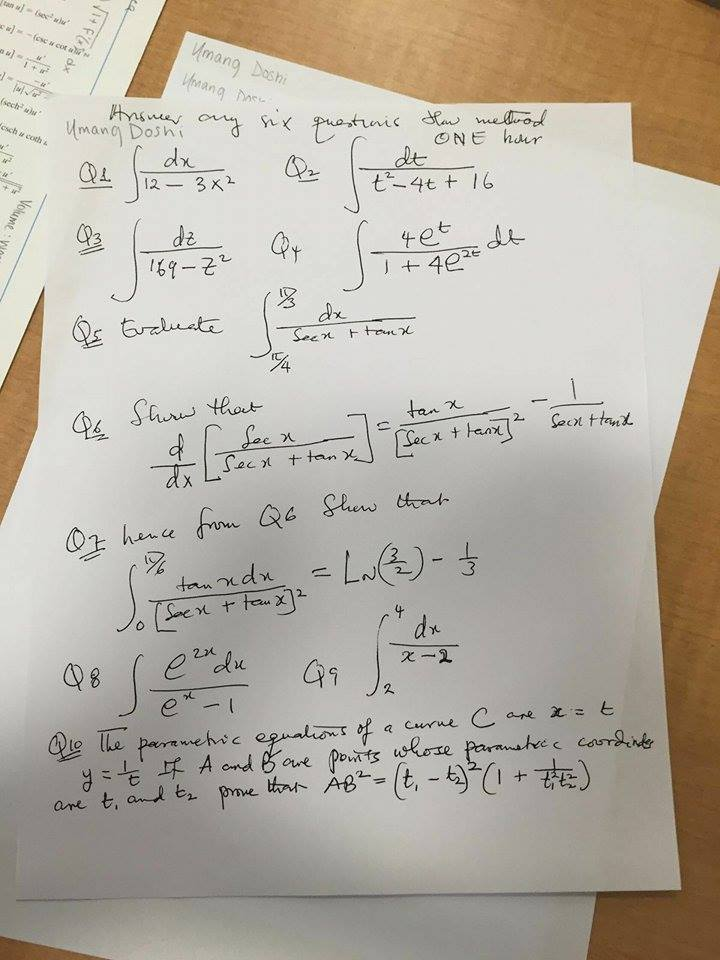 [tan u] = (sec² u)u'
c u] = −(csc u cot u)u'
Umang Doshi
Umang Doshi
Answer any six questions show method
Umang Doshi
ONE hour
Q1 ∫ dx / (12 − 3x²) Q2 ∫ dt / (t² − 4t + 16)
Q3 ∫ dz / (169 − z²) Q4 ∫ 4e^t / (1 + 4e^(2t)) dt
Q5 Evaluate ∫_(π/4)^(π/3) dx / (Sec x + tan x)
Q6 Show that
d/dx [Sec x / (Sec x + tan x)] = tan x / [Sec x + tan x]² − 1 / (Sec x + tan x)
Q7 hence from Q6 Show that
∫_0^(π/6) tan x dx / [Sec x + tan x]² = LN(3/2) − 1/3
Q8 ∫ e^(2x) dx / (e^x − 1) Q9 ∫_2^4 dx / (x − 2)
Q10 The parametric equations of a curve C are x = t
y = 1/t If A and B are points whose parametric coordinds
are t₁ and t₂ prove that AB² = (t₁ − t₂)² (1 + 1/(t₁² t₂²))